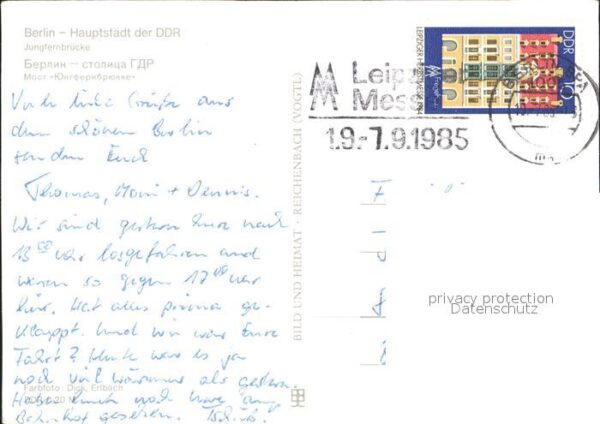 Berlin – Hauptstadt der DDR
Jungfernbrücke
Берлин – столица ГДР
Мост «Юнгфернбрюкке»
Viele liebe Grüße aus
dem schönen Berlin
senden Euch
Thomas, Moni + Dennis.
Wir sind gestern nach
13 00 Uhr losgefahren und
waren so gegen 17 00 Uhr
hier. Hat alles prima ge-
klappt. Und wie war Eure
Fahrt? Heute war es ja
noch viel wärmer als gestern.
Euch noch am
Bahnhof gesehen. Tschüß!
Farbfoto: Dick, Erlbach
BILD UND HEIMAT · REICHENBACH (VOGTL)
Leipziger
Messe
1.9.-7.9.1985
DDR
10
privacy protection
Datenschutz